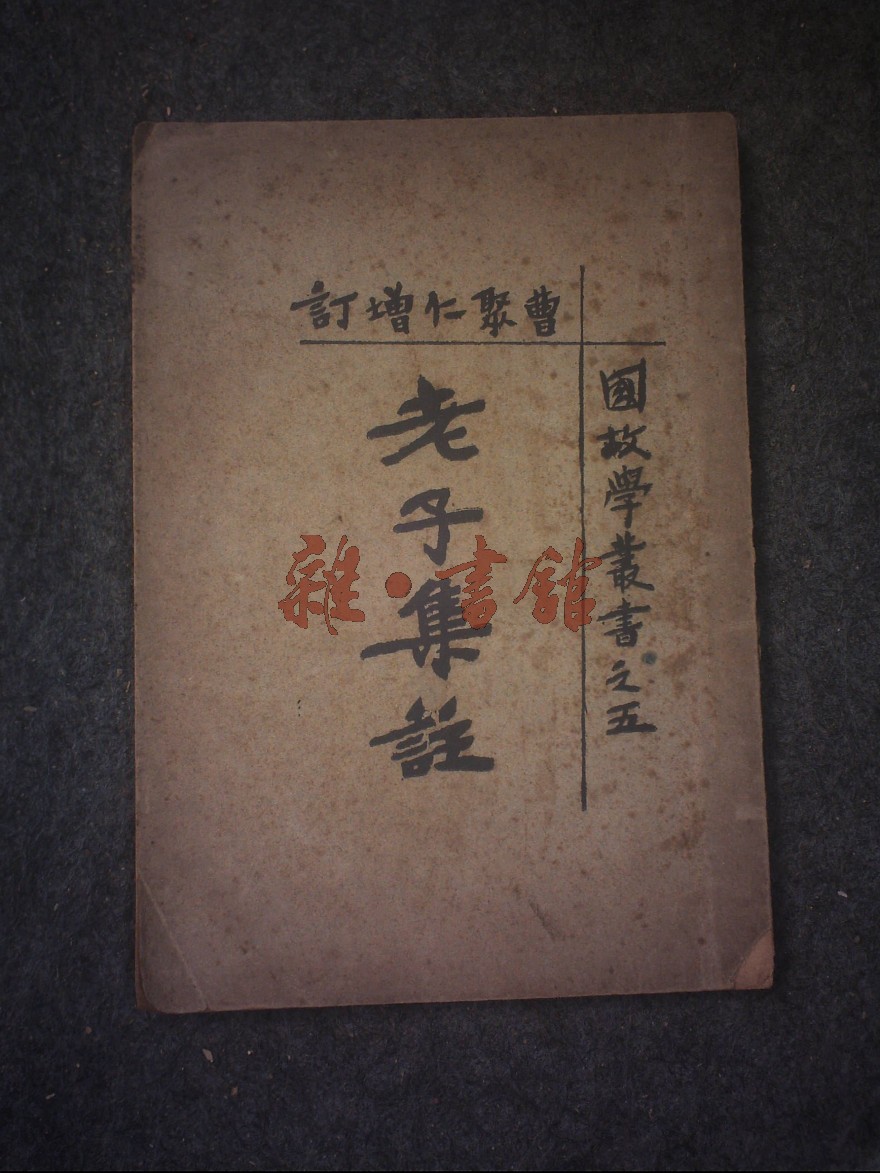 國故學叢書之五
曹聚仁增訂
老子集註
雜·書館